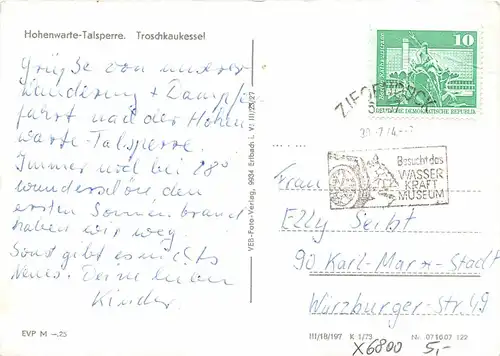 Hohenwarte-Talsperre. Troschkaukessel
Grüße von unserer
Wanderung + Dampf-
fahrt nach der Hohen-
warte-Talsperre.
Immer noch bei 28°
wunderschön den
ersten Sonnenbrand
haben wir weg.
Sonst gibt es nichts
Neues. Deine lieben
Kinder.
EVP M –,25
VEB-Foto-Verlag, 9934 Erlbach i. V.
10
DEUTSCHE DEMOKRATISCHE REPUBLIK
ZIEGENRÜCK
Besucht das
WASSER
KRAFT
MUSEUM
Frau
Elly Seibt
90 Karl-Marx-Stadt
Würzburger-Str. 49
III/18/197 K 1/73 Nr. 07 10 07 122
X6800 5,-